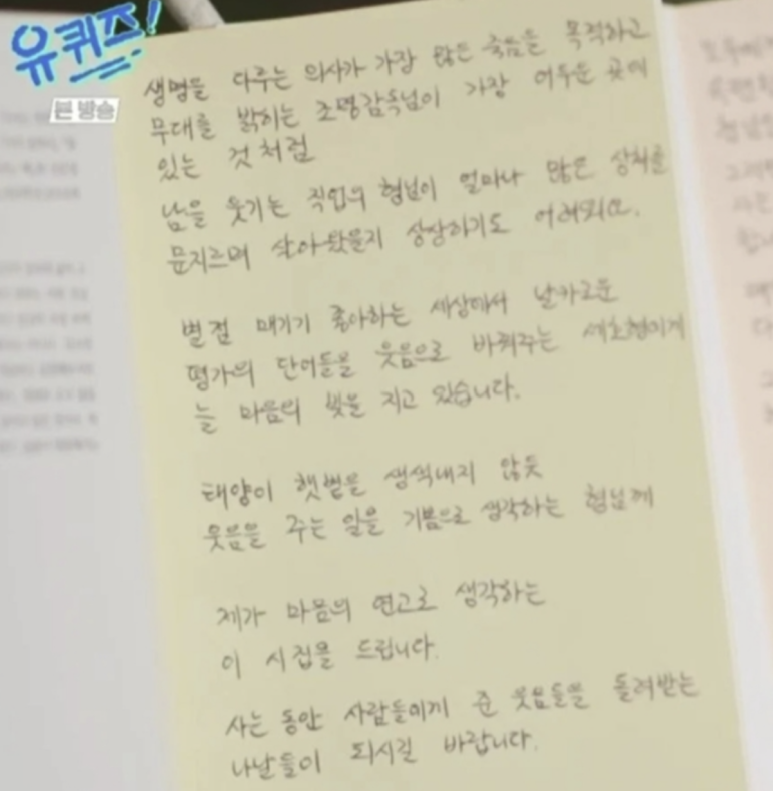 유퀴즈!
본 방송
생명을 다루는 의사가 가장 많은 죽음을 목격하고
무대를 밝히는 조명감독님이 가장 어두운 곳에
있는 것처럼
남을 웃기는 직업의 형님이 얼마나 많은 상처를
문지르며 살아왔을지 상상하기도 어려워요.
별점 매기기 좋아하는 세상에서 날카로운
평가의 단어들을 웃음으로 바꿔주는 세호형에게
늘 마음의 빚을 지고 있습니다.
태양이 햇볕을 생색내지 않듯
웃음을 주는 일을 기쁨으로 생각하는 형님께
제가 마음의 연고로 생각하는
이 시집을 드립니다.
사는 동안 사람들에게 준 웃음들을 돌려받는
나날들이 되시길 바랍니다.